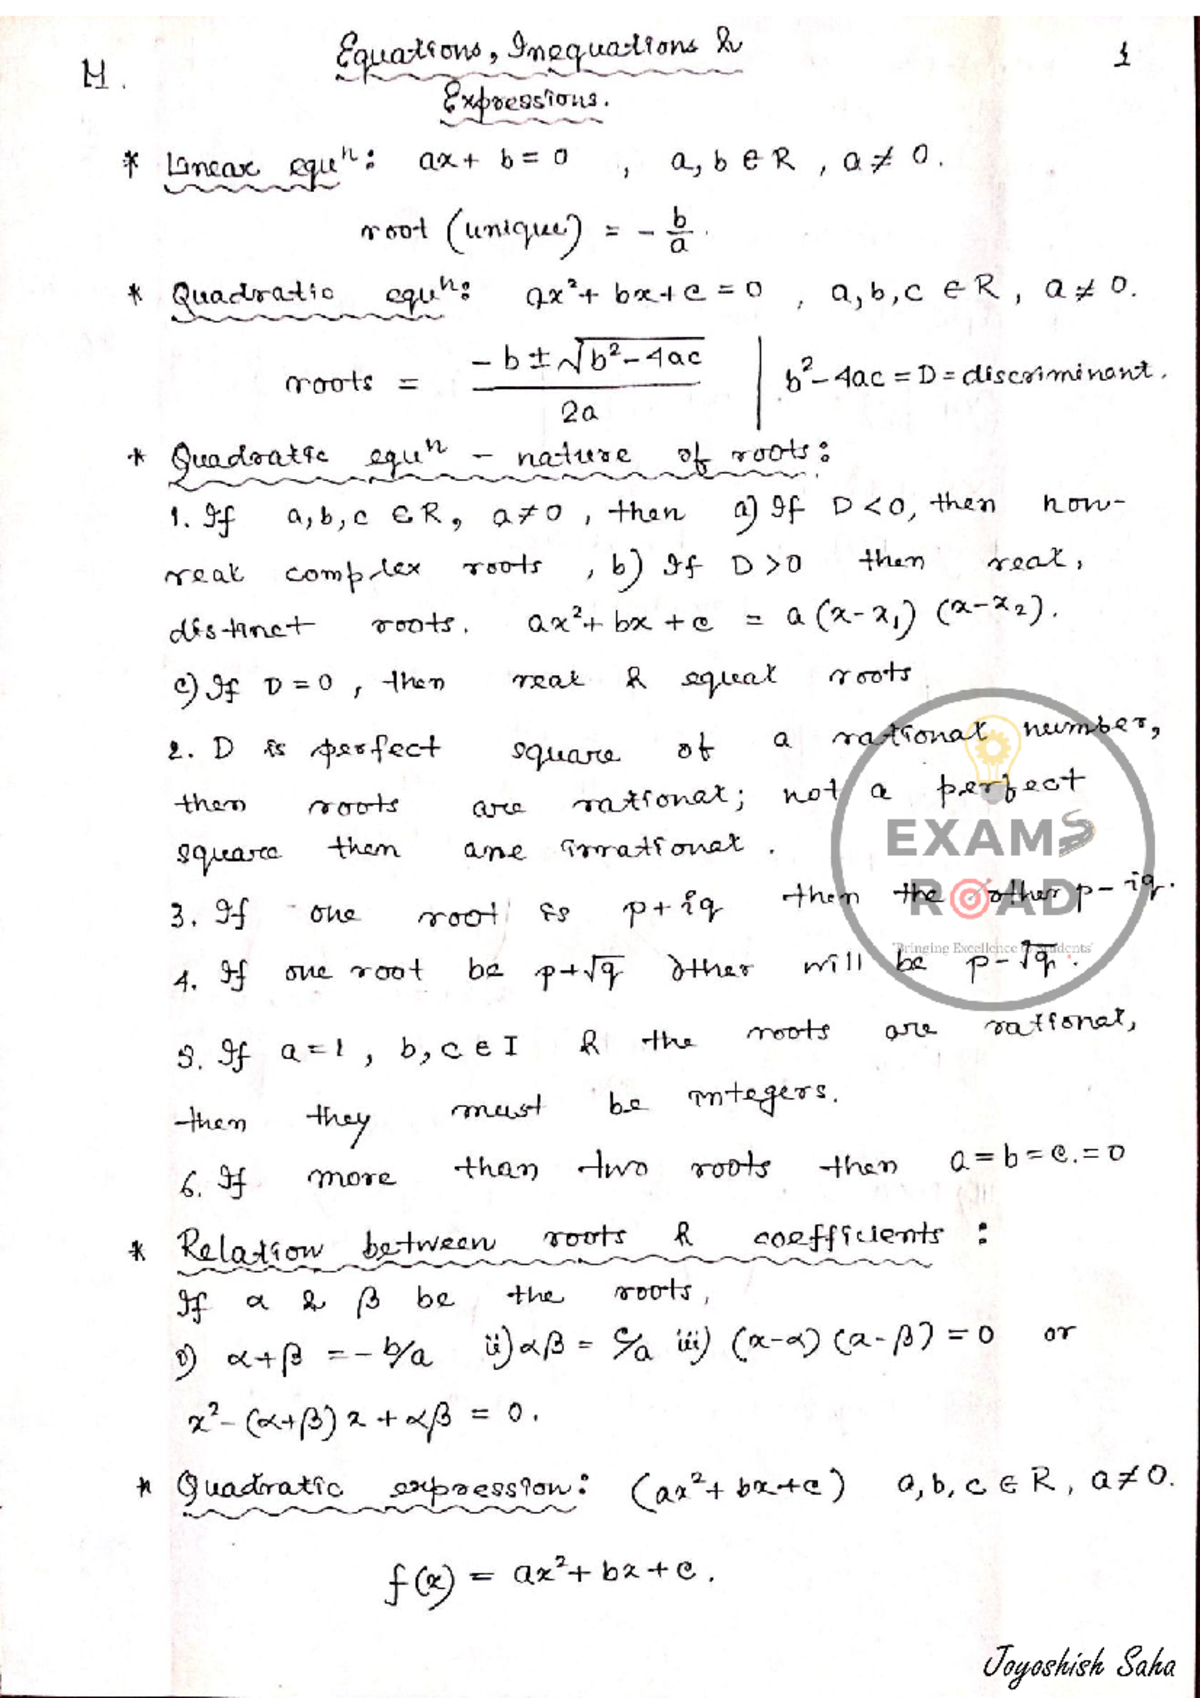 M.
Equations, Inequations &
1
Expressions.
* Linear equⁿ: ax + b = 0 , a, b ∈ R , a ≠ 0.
root (unique) = - b/a.
* Quadratic equⁿ: ax² + bx + c = 0 , a, b, c ∈ R , a ≠ 0.
roots = (-b ± √(b² - 4ac))/2a | b² - 4ac = D = discriminant.
* Quadratic equⁿ - nature of roots:
1. If a, b, c ∈ R, a ≠ 0 , then a) If D < 0, then non-
real complex roots , b) If D > 0 then real,
distinct roots. ax² + bx + c = a (x - x₁) (x - x₂).
c) If D = 0 , then real & equal roots
2. D is perfect square of a rational number,
then roots are rational; not a perfect
square then are irrational.
EXAMS
3. If one root is p + iq then the other p - iq.
ROAD
"Bringing Excellence to Students"
4. If one root be p + √q other will be p - √q.
5. If a = 1 , b, c ∈ I & the roots are rational,
then they must be integers.
6. If more than two roots then a = b = c. = 0
* Relation between roots & coefficients :
If α & β be the roots,
i) α + β = - b/a ii) αβ = c/a iii) (x - α) (x - β) = 0 or
x² - (α + β) x + αβ = 0.
* Quadratic expression: (ax² + bx + c) a, b, c ∈ R, a ≠ 0.
f(x) = ax² + bx + c.
Joyoshish Saha